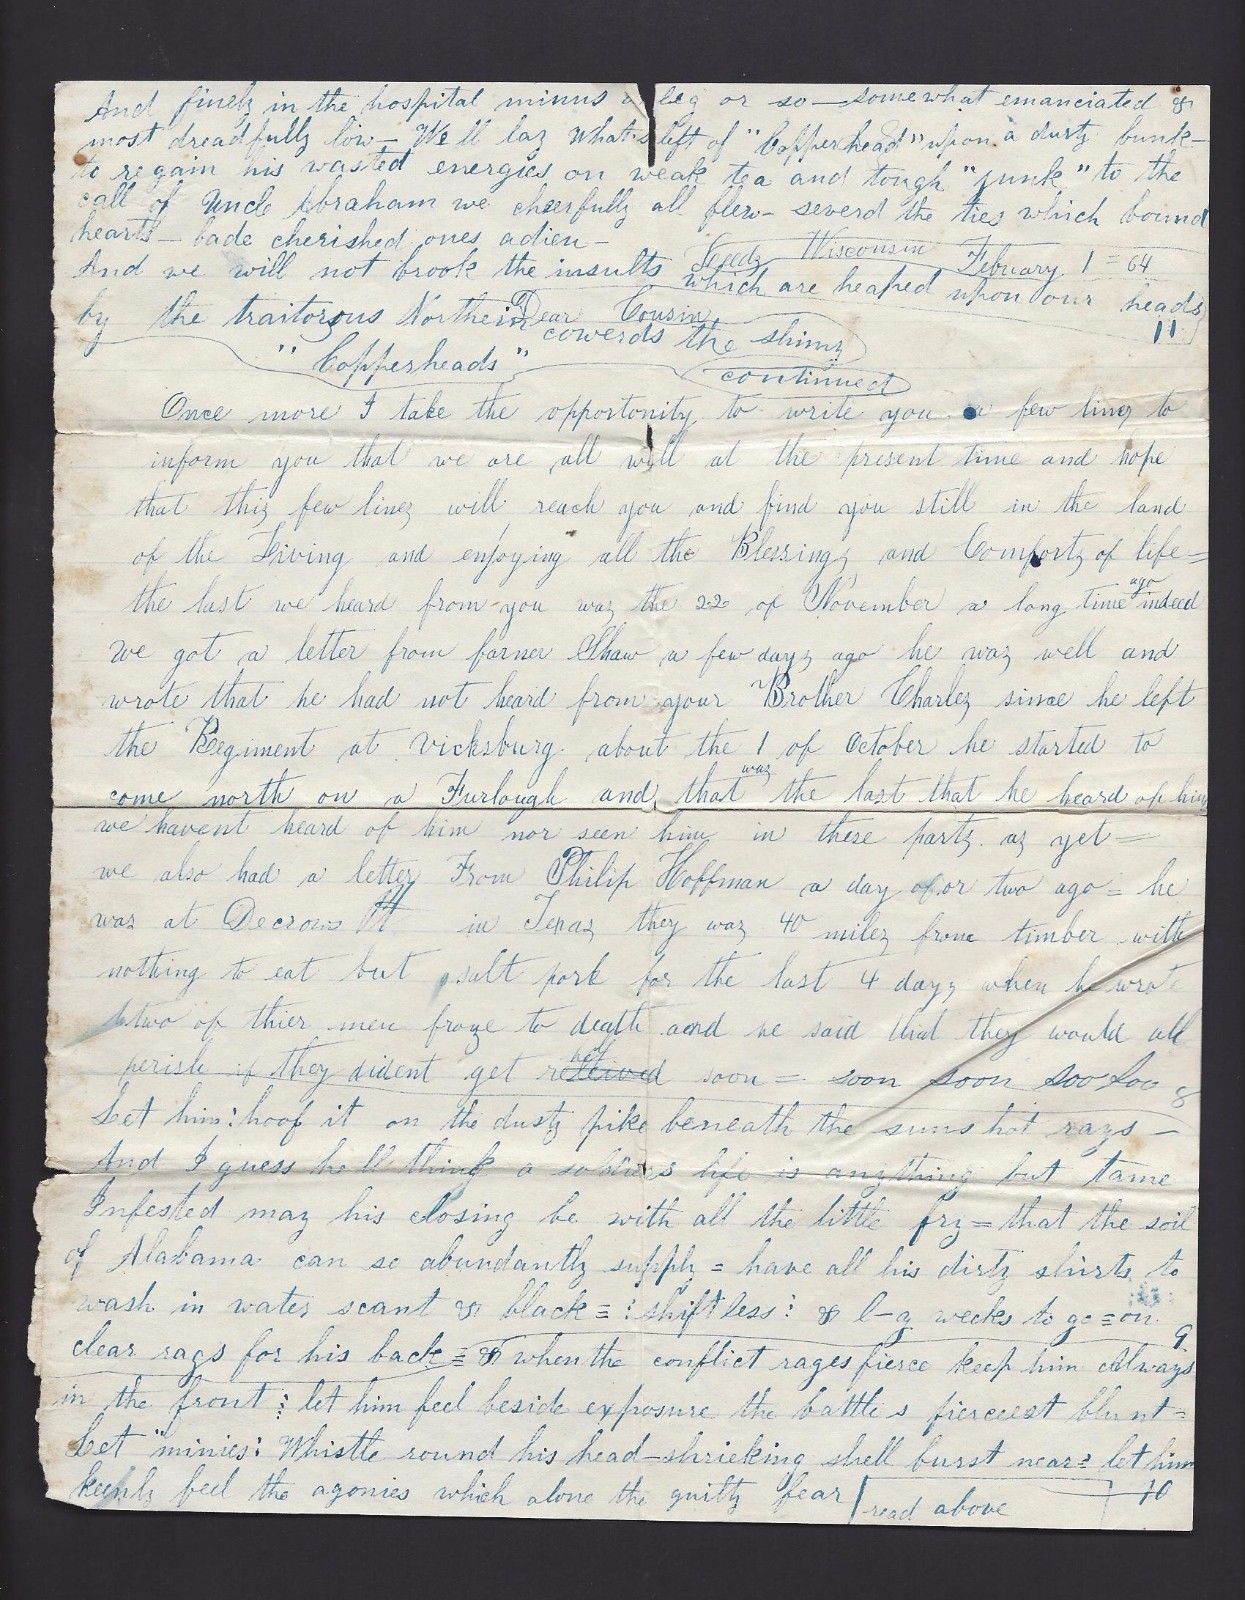 And finely in the hospital minus a leg or so – somewhat emanciated &
most dreadfully low – We ll lay What's left of "Copperhead" upon a dusty bunk –
to regain his wasted energies on weak tea and tough "junk" to the
call of Uncle Abraham we cheerfully all flew – severd the ties which bound
hearts – bade cherished ones adieu –
Leedz Wisconsin Febuary 1 = 64
And we will not brook the insults which are heaped upon our heads
by the traitorous Northern cowerds the slimy 11
Dear Cousin
"Copperheads"
continued
Once more I take the opportunity to write you a few linez to
inform you that we are all well at the present time and hope
that thiz few linez will reach you and find you still in the land
of the Living and enjoying all the Blessingz and Comfortz of life =
the last we heard from you waz the 22 of November a long time ago indeed
we got a letter from farner Shaw a few dayz ago he waz well and
wrote that he had not heard from your Brother Charlez since he left
the Regiment at Vicksburg about the 1 of October he started to
come north on a Furlough and that waz the last that he heard of him
we havent heard of him nor seen him in these partz az yet =
we also had a letter From Philip Hoffman a day of or two ago = he
was at Decrows Pt in Texaz they waz 40 milez from timber with
nothing to eat but salt pork for the last 4 dayz when he wrote
two of thier men froze to death and he said that they would all
perish if they dident get received soon = soon soon soo soo 8
Let him: hoof it on the dusty pike beneath the suns hot rays –
And I guess he ll think a soldiers life is anything but tame
Infested may his closing be with all the little fry = that the soil
of Alabama can so abundantly supply = have all his dirty shirts to
wash in water scant & black = : shiftless : & l-y weeks to go = on
clear rags for his back = & when the conflict rages fierce keep him always 9
in the front : let him feel beside exposure the battle s fierceest blunt =
Let "minies: Whistle round his head – shrieking shell burst near : let him
keenly feel the agonies which alone the guilty fear read above 10